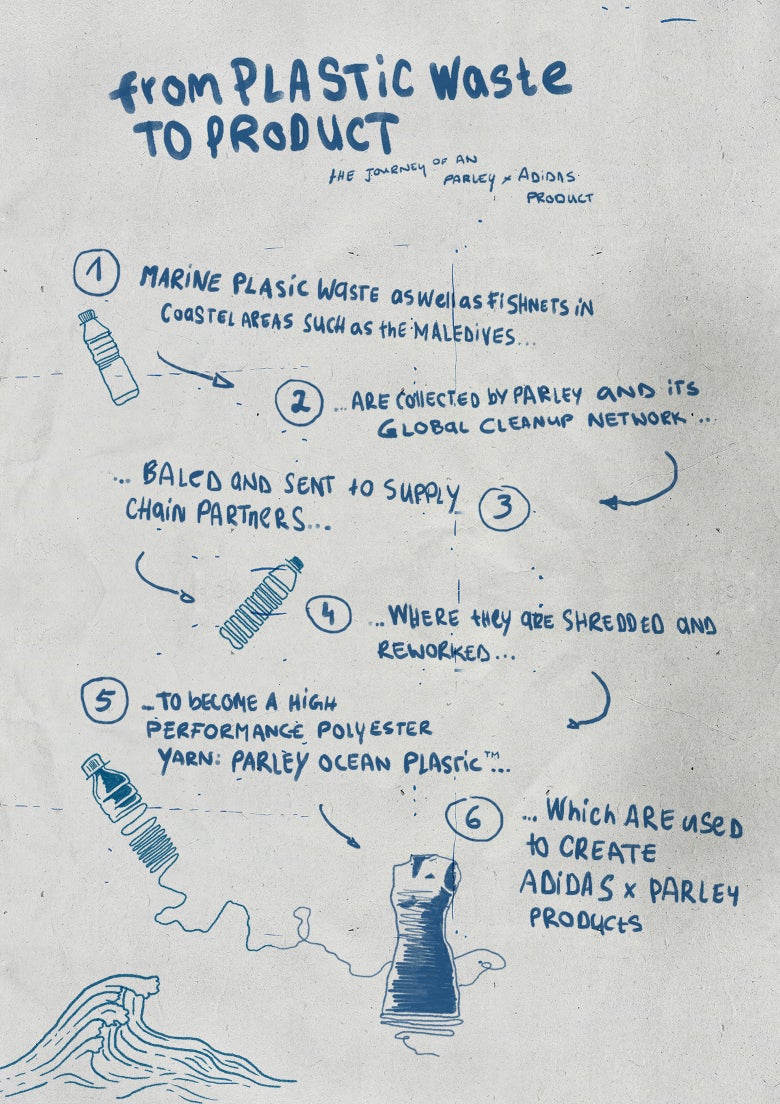 from PLASTiC Waste
TO PRODUCT
tHE JOURNEY OF AN
PARLEY x ADiDAS
PRODUCT
1
MARiNE PLASiC WASTE as well as FiSHNETS iN
COASTEL AREAS SUCH as the MALEDiVES...
2
...ARE COllECTED by PARLEY AND iTS
GLOBAL CLEANUP NETWORK...
... BALED AND SENT to SUPPLY
CHAiN PARTNERS...
3
4
...WHERE they are SHREDDED AND
REWORKED...
5
...TO bECOME A HiGH
PERFORMANCE POLYESTER
YARN: PARLEY OCEAN PLASTiC™...
6
... Which ARE used
to CREATE
ADiDAS x PARLEY
PRODUCtS